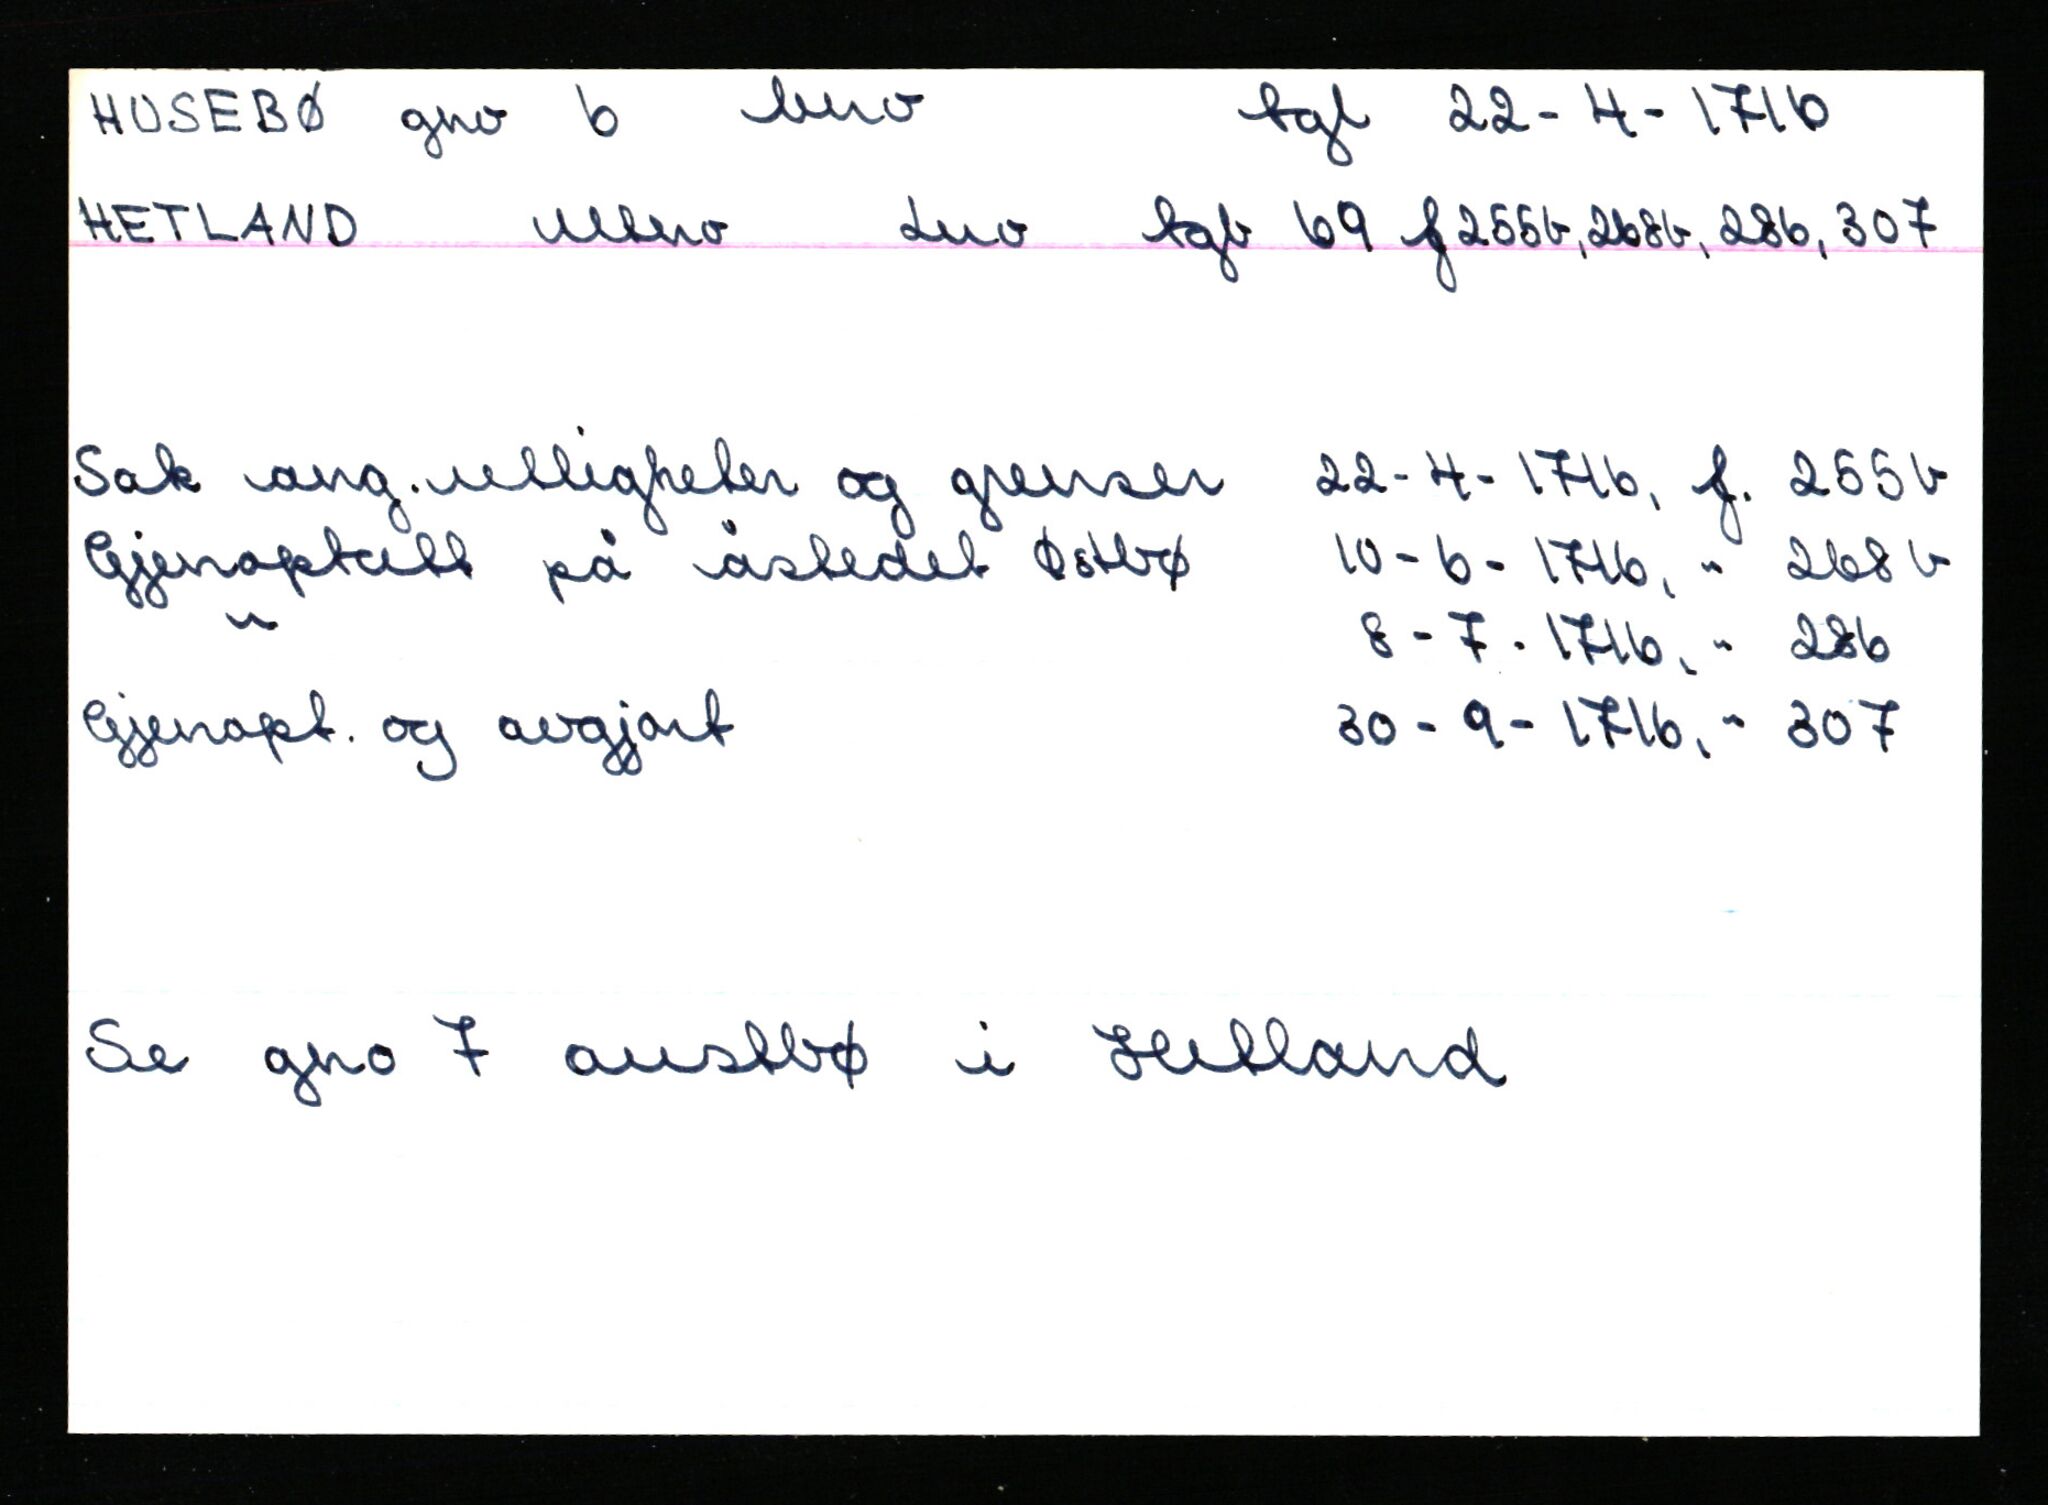 HUSEBØ gno 6 bno tgl 22-4-1716
HETLAND utno lno tgb 69 f 255b, 268b, 286, 307
Sak ang. utligheter og grenser 22-4-1716, f. 255b
Gjenopptatt på åstedet Østbø 10-6-1716, " 268b
" 8-7-1716, " 286
Gjenopt. og avgjort 30-9-1716, " 307
Se gno 7 austbø i Hetland